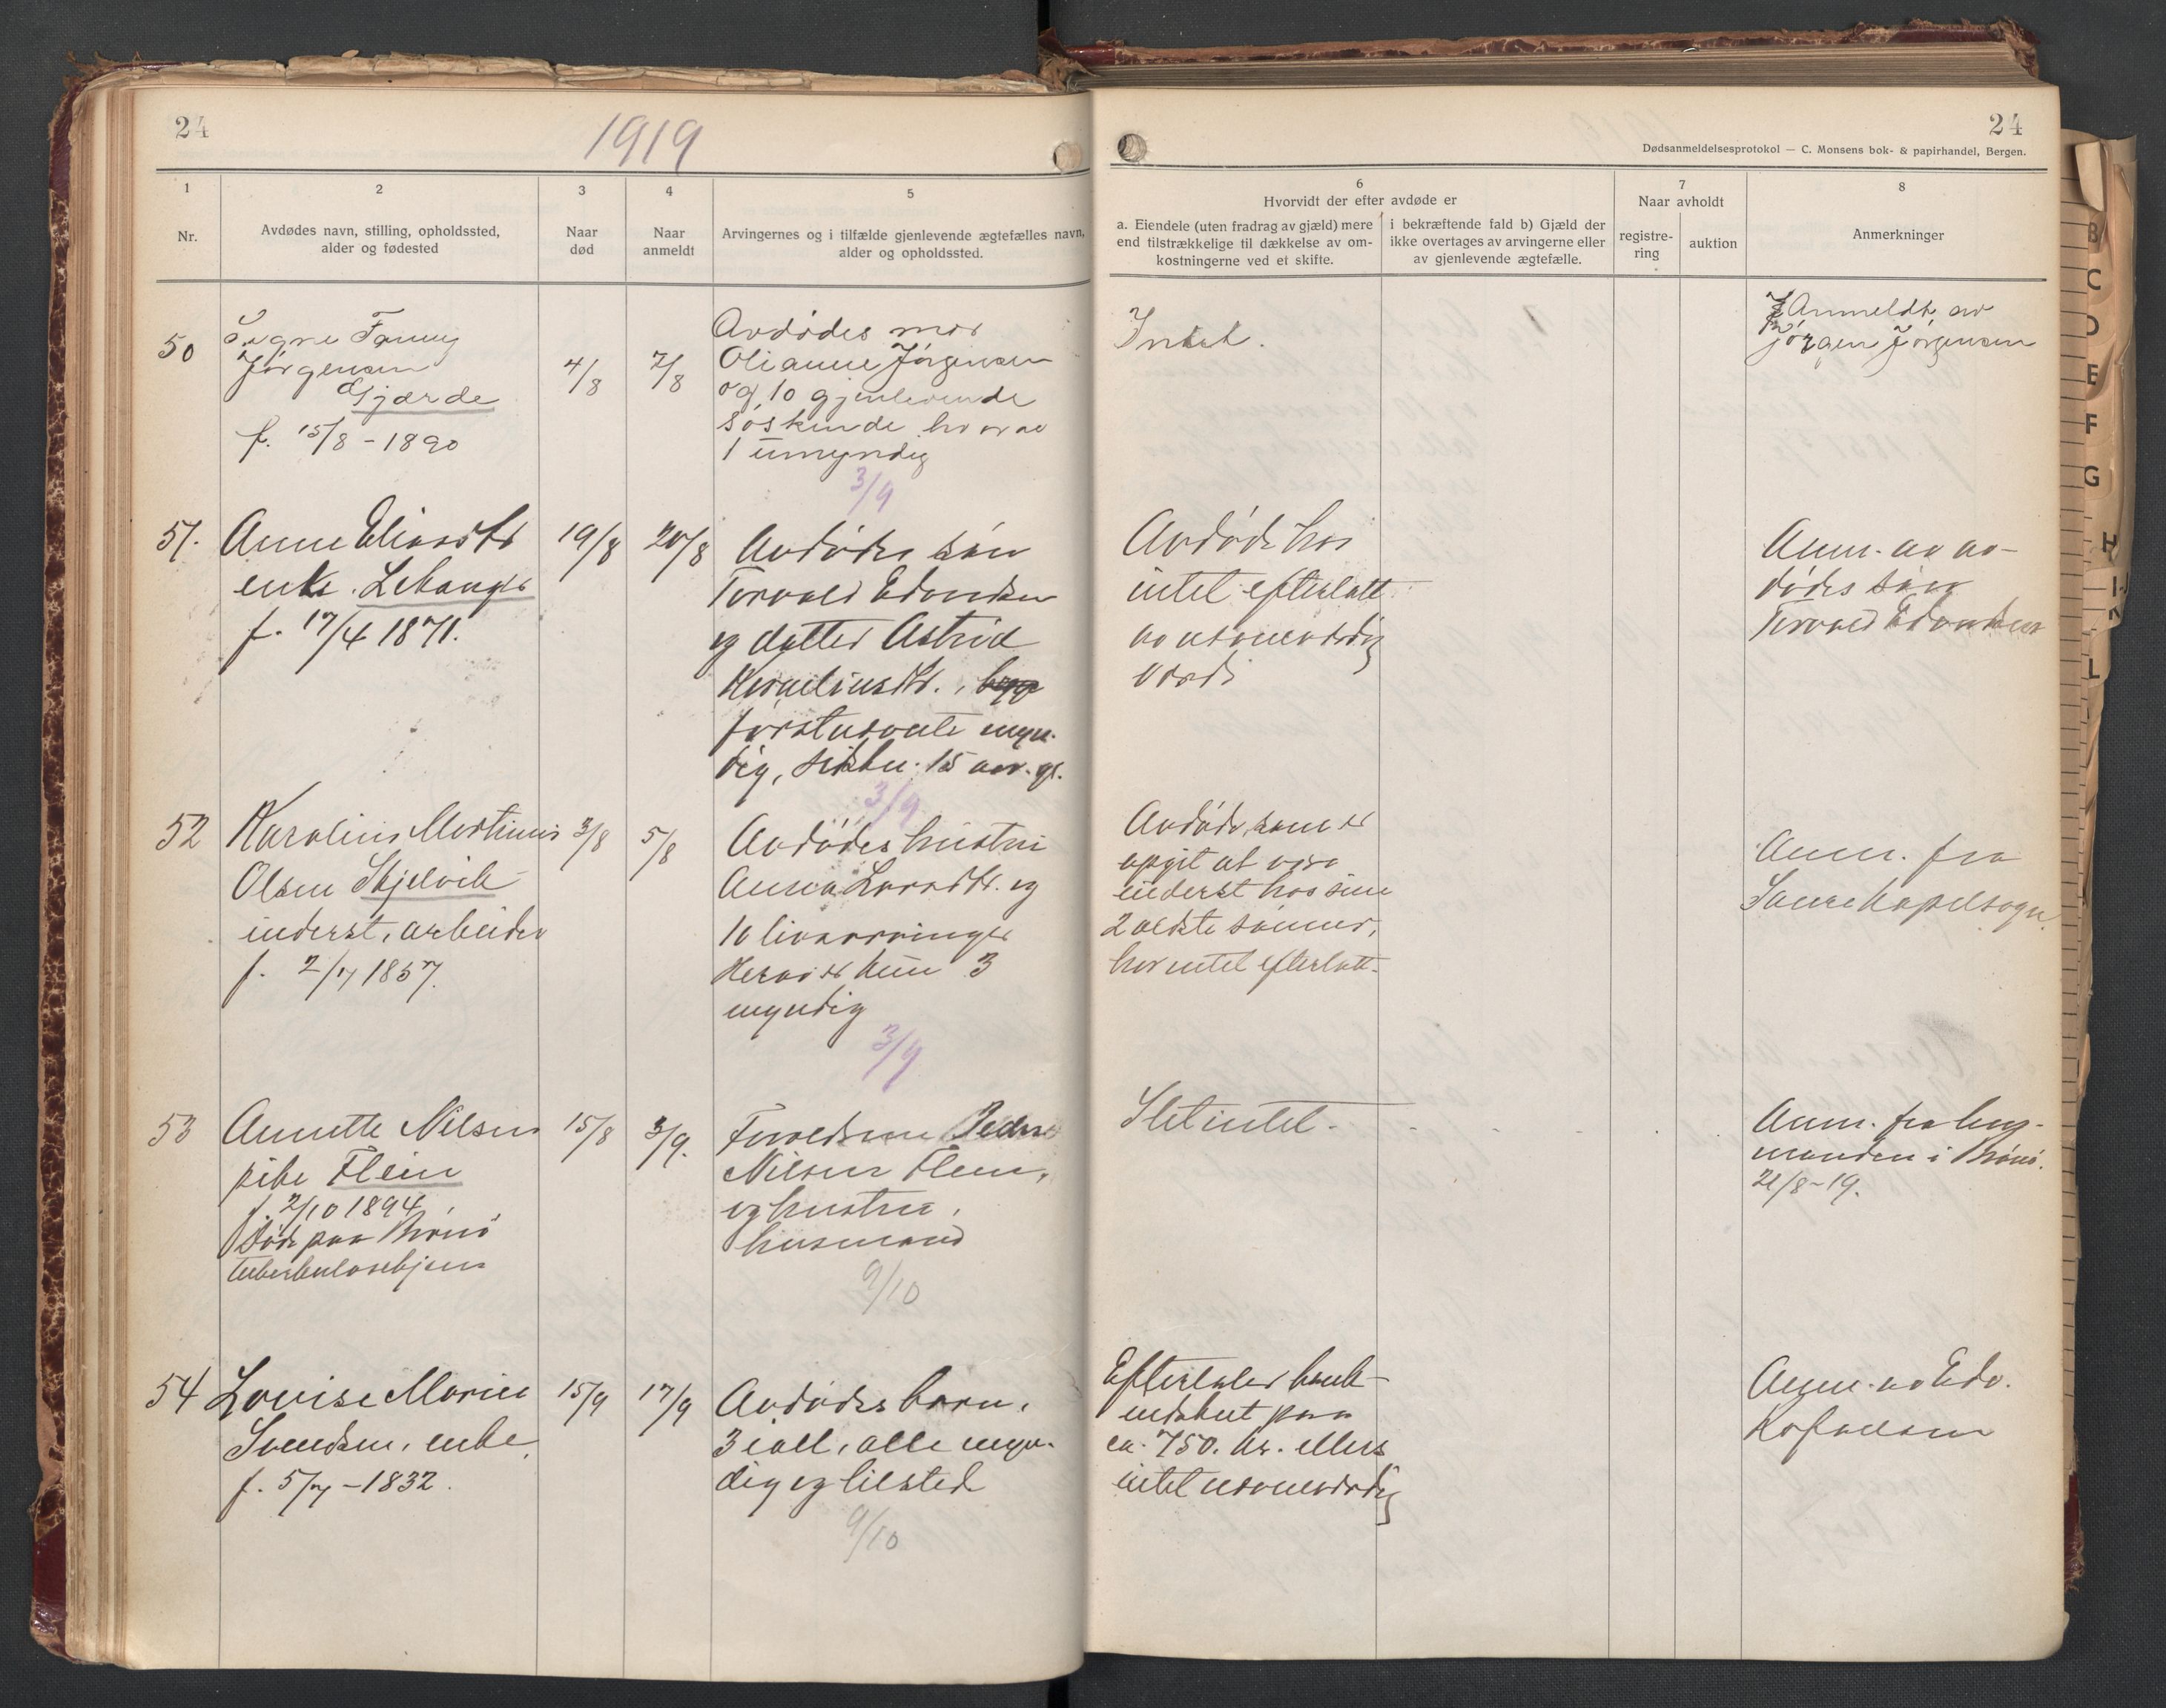 24
1919
1
2
3
4
5
Nr.
Avdødes navn, stilling, opholdssted,
alder og fødested
Naar
død
Naar
anmeldt
Arvingernes og i tilfælde gjenlevende ægtefælles navn,
alder og opholdssted.
50
Signe Fanny
Jørgensen
Gjærde
f. 15/8 - 1890
4/8
7/8
Avdødes mor
Olianne Jørgensen
og 10 gjenlevende
søskende hvorav
1 umyndig
3/9
51.
Anne Eliasdtr
enke. Lekanger
f. 17/4 1871.
19/8
20/8
Avdødes søn
Torvald Edvardsen
og datter Astrid
Korneliusdtr.,
førstnevnte myn-
dig, sidstn. 15 aar gl.
3/9
52
Karolius Martinus
Olsen Skjelvik
inderst, arbeider
f. 2/7 1857.
3/8
5/8
Avdødes hustru
Anna Larsdtr. og
10 livsarvinger
Herav er kun 3
myndig
3/9
53
Annette Nilsen
pike Flein
f. 2/10 1894
Død paa Brønø
tuberkulosehjem
15/8
3/9.
Forældrene Peder
Nilsen Flein,
og hustru,
husmand
9/10
54
Lovise Marie
Svendsen, enke
f. 5/7 - 1832.
15/9
17/9
Avdødes barn,
3 iall, alle myn-
dig og tilsted
9/10
24
Dødsanmeldelsesprotokol — C. Monsens bok- & papirhandel, Bergen.
6
7
8
Hvorvidt der efter avdøde er
a. Eiendele (uten fradrag av gjæld) mere
end tilstrækkelige til dækkelse av om-
kostningerne ved et skifte.
i bekræftende fald b) Gjæld der
ikke overtages av arvingerne eller
av gjenlevende ægtefælle.
Naar avholdt
registre-
ring
auktion
Anmerkninger
Intet.
Anmeldt av
Jørgen Jørgensen
Avdøde har
intet efterlatt
av nævneværdig
værdi
Anm. av av-
dødes søn
Torvald Edvardsen
Avdøde, som er
opgit at være
inderst hos sine
2 ældste sønner,
har intet efterlatt.
Anm. fra
Kapelsogn.
Slet intet.
Anm. fra lens-
manden i Brønø.
21/8-19.
Efterlater bank-
indskut paa
ca. 750. kr. ellers
intet nævneværdig
Anm. av Edv.
Kofoedsen
B
C
D
E
F
G
H
L